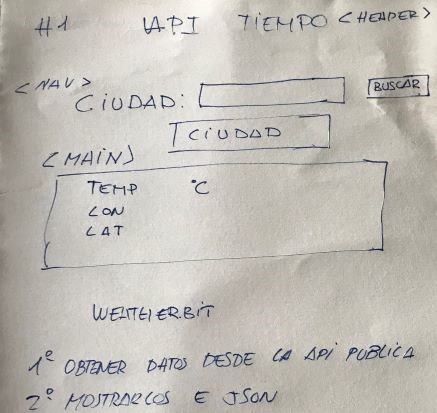 #1 API TIEMPO <HEADER>
<NAV>
CIUDAD: BUSCAR
CIUDAD
<MAIN>
TEMP °C
LON
LAT
1º OBTENER DATOS DESDE LA API PUBLICA
2º MOSTRARLOS E JSON